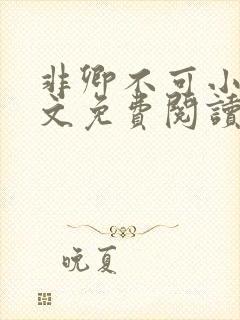 非卿不可小
文免費閱讀
晚夏